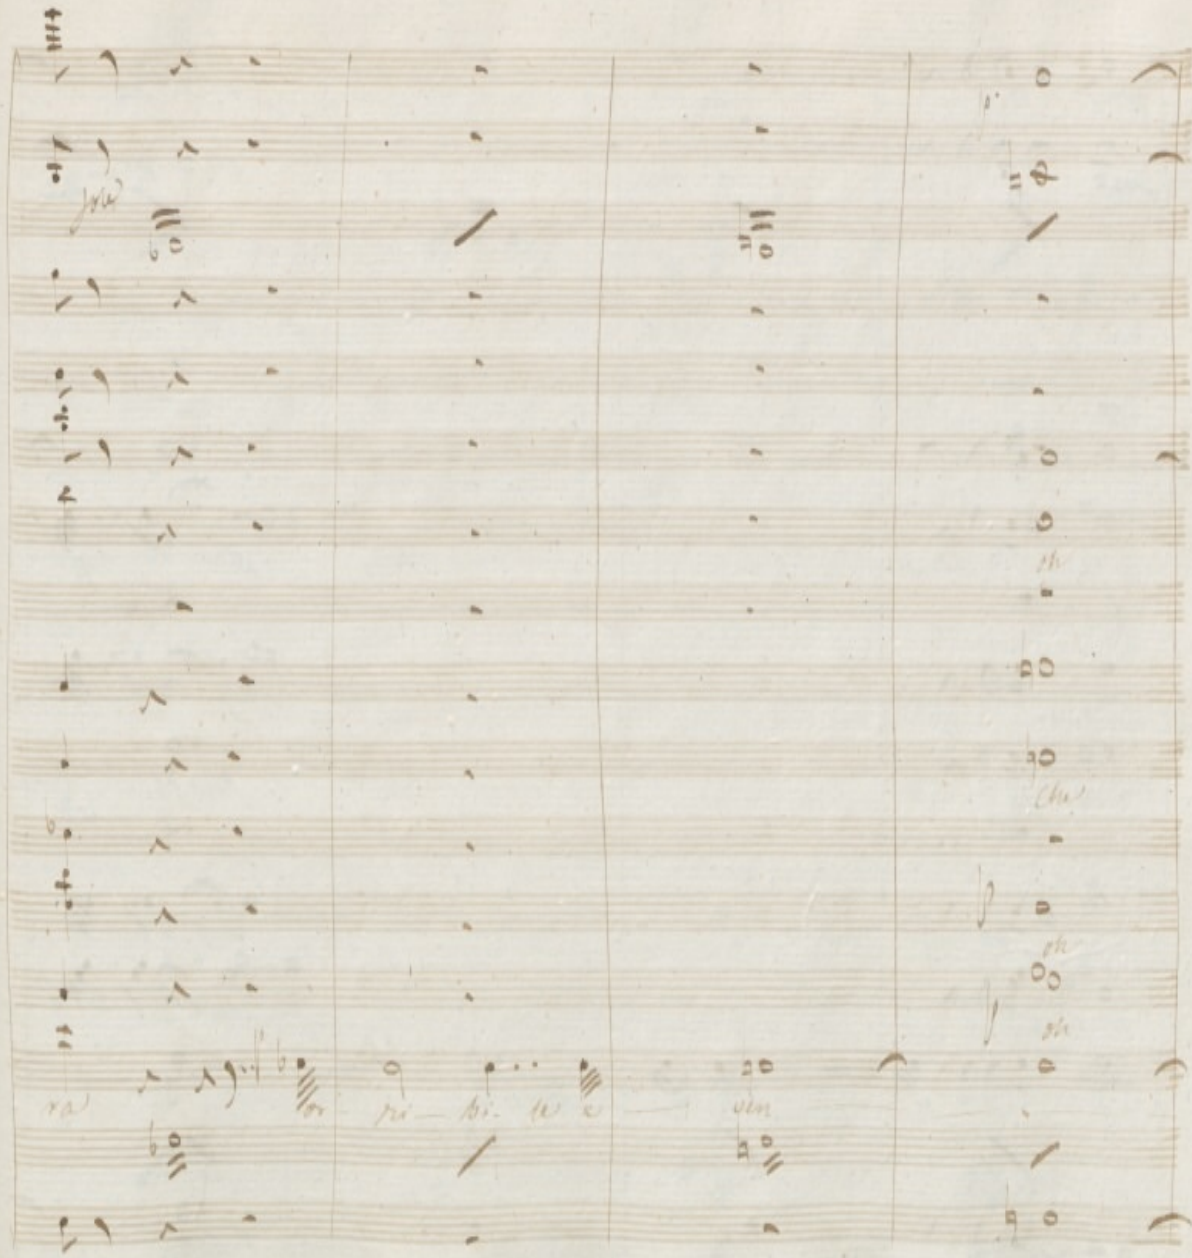 p.
oh
che
oh
oh
ra or- ri- bi- le e ven